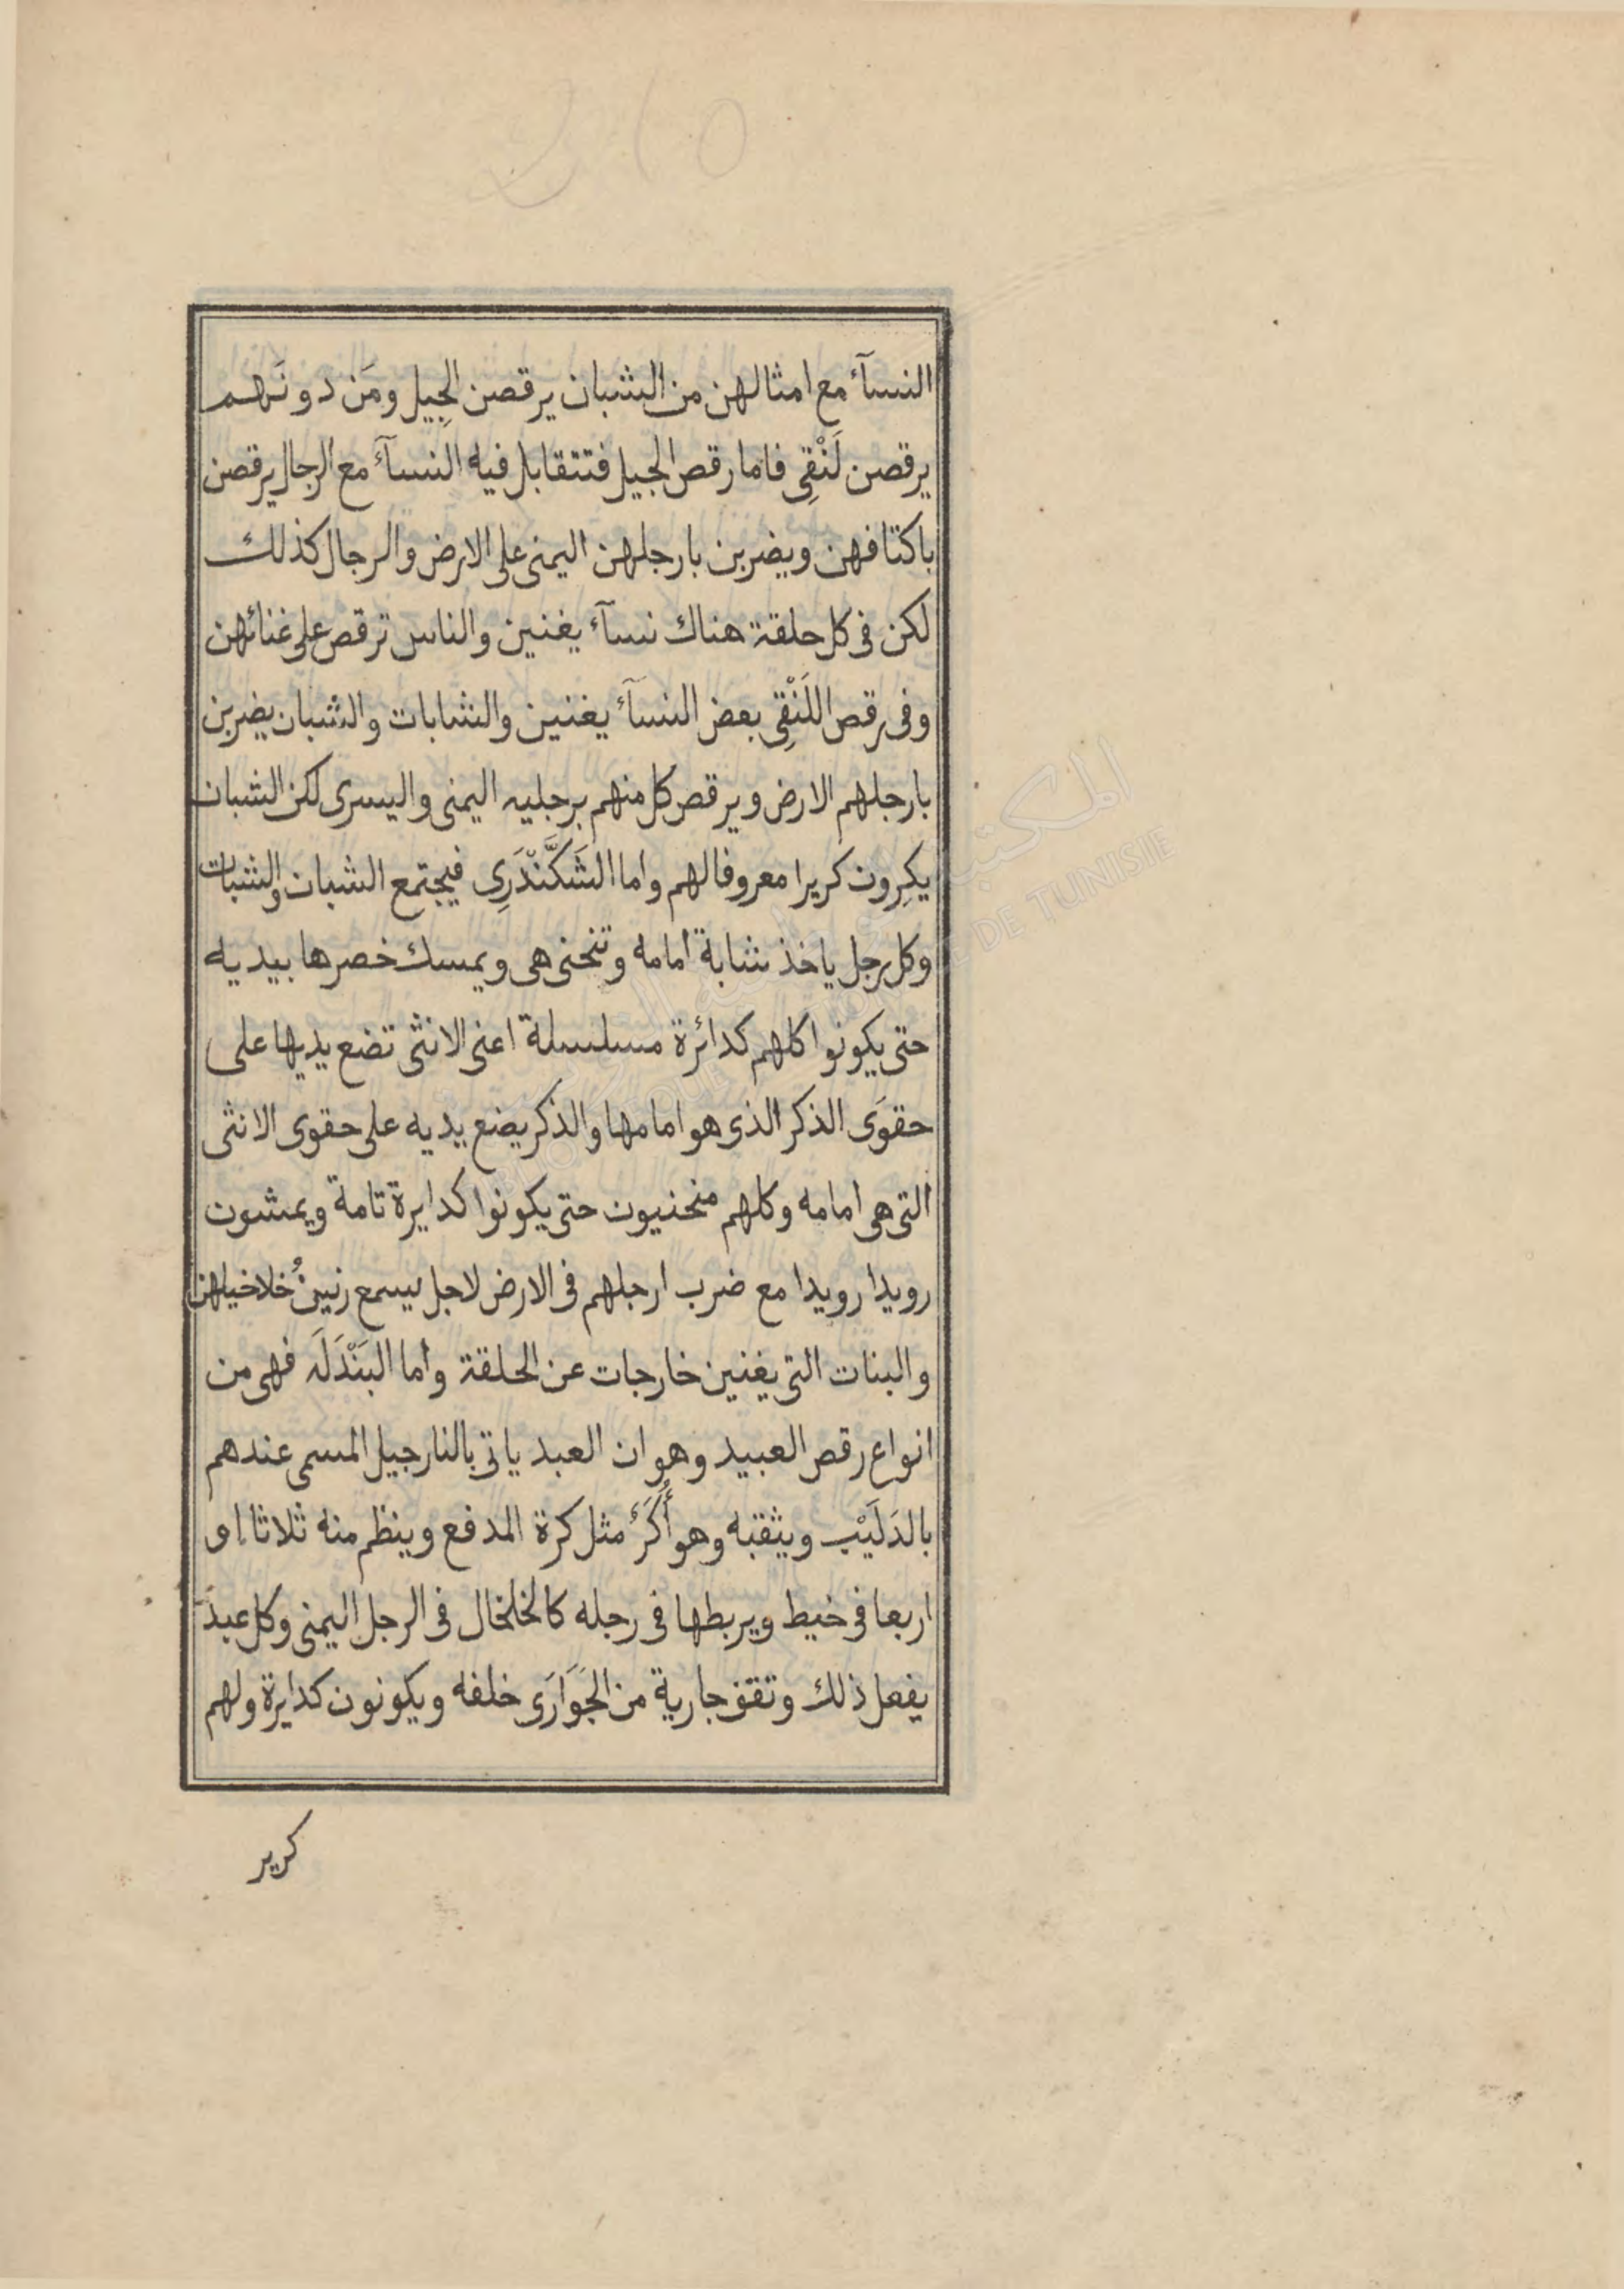 النسآء مع امثالهن من الشبان يرقصن الجِيل ومَن دونَهم
يرقصن لَنْقِى فاما رقص الجيل فتتقابل فيه النسآء مع الرجال يرقصن
باكتافهن ويضربن بارجلهن اليمنى على الارض والرجال كذلك
لكن فى كل حلقة هناك نسآء يغنين والناس ترقص على غنائهن
وفى رقص اللَنْقِى بعض النسآء يغنين والشابات والشبان يضربن
بارجلهم الارض ويرقص كل منهم برجليه اليمنى واليسرى لكن الشبان
يكِرون كريرا معروفا لهم واما الشَكَّنْدَرِى فيجتمع الشبان والشبات
وكل رجل ياخذ شابة امامه وتنحنى هى ويمسك خصرها بيديه
حتى يكونوا كلهم كدائرة مسلسلة اعنى الانثى تضع يديها على
حقوَى الذكر الذى هو امامها والذكر يضع يديه على حقوى الانثى
التى هى امامه وكلهم منحنيون حتى يكونوا كدايرة تامة ويمشون
رويدا رويدا مع ضرب ارجلهم فى الارض لاجل يسمع رنينُ خلاخيلهن
والبنات التى يغنين خارجات عن الحلقة واما البَنْدَلَه فهى من
انواع رقص العبيد وهو ان العبد ياتى بالنارجيل المسمى عندهم
بالدَلَيْب ويثقبه وهو أُكَرٌ مثل كرة المدفع وينظم منه ثلاثا اى
اربعا فى خيط ويربطها فى رجله كالخلخال فى الرجل اليمنى وكل عبد
يفعل ذلك وتقف جارية من الجَوَارَى خلفه ويكونون كدايرة ولهم
كرير
المكتبة
DE TUNISIE